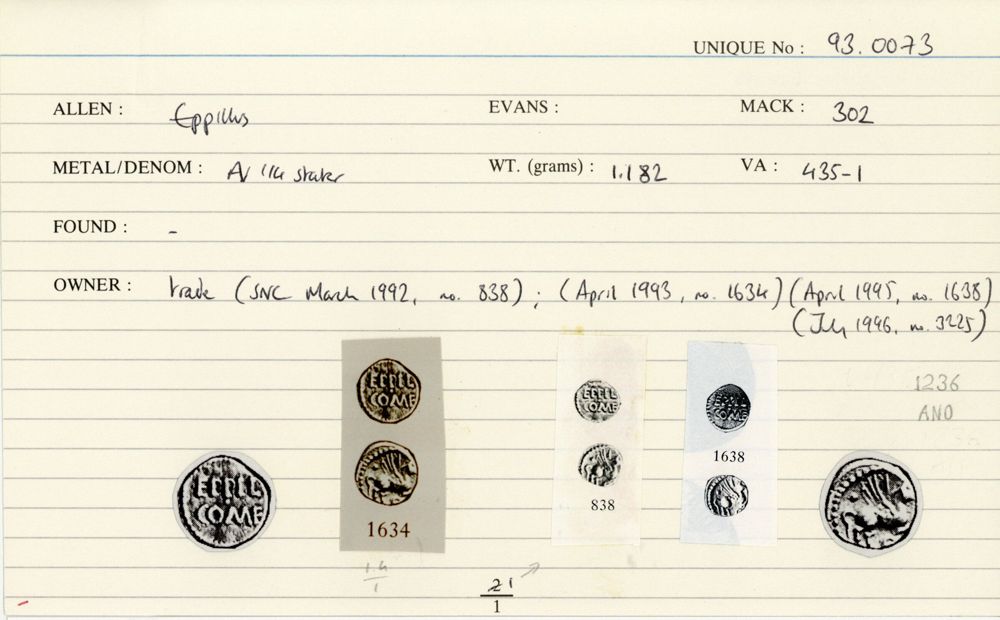 UNIQUE No : 93.0073
ALLEN : Eppillus EVANS : MACK : 302
METAL/DENOM : AV 1/4 stater WT. (grams) : 1.182 VA : 435-1
FOUND : -
OWNER : trade (SNC March 1992, no. 838) ; (April 1993, no. 1634) (April 1995, no. 1638)
(July 1996, no. 3225)
1236
ANO
EPPIL
COME
EPPIL
COME
EPPIL
COME
EPPIL
COME
1638
838
1634
1.4
1
21
1